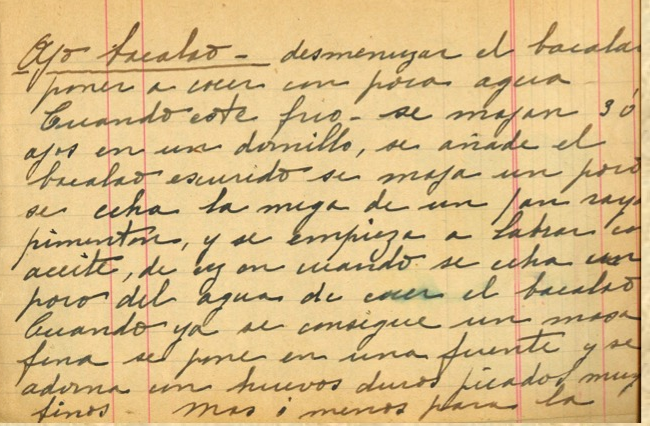 Ajo bacalao - desmenuzar el bacalao
poner a cocer con poca agua
Cuando este frio - se majan 3 ó
ajos en un dornillo, se añade el
bacalao escurido se maja un poco
se echa la miga de un pan raya
pimenton, y se empieza a labrar co
aceite, de vez en cuando se echa un
poco del agua de cocer el bacalao
Cuando ya se consigue un masa
fina se pone en una fuente y se
adorna con huevos duros picados muy
finos - Mas o menos para la